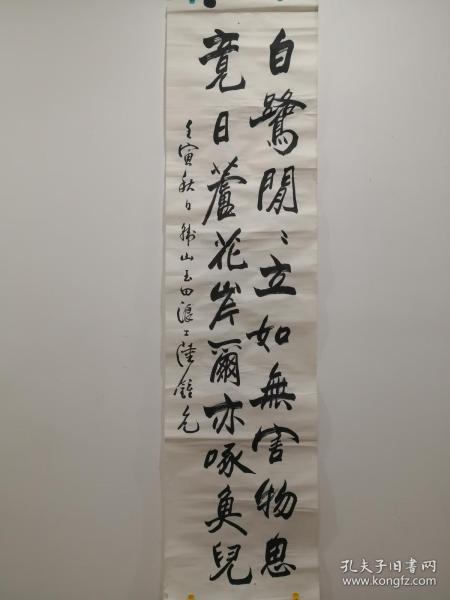 白鷺閒〻立如無害物思
竟日蘆花岸爾亦啄魚兒
壬寅秋日 山玉田浪士陸鍾允
孔夫子旧书网
www.kongfz.com